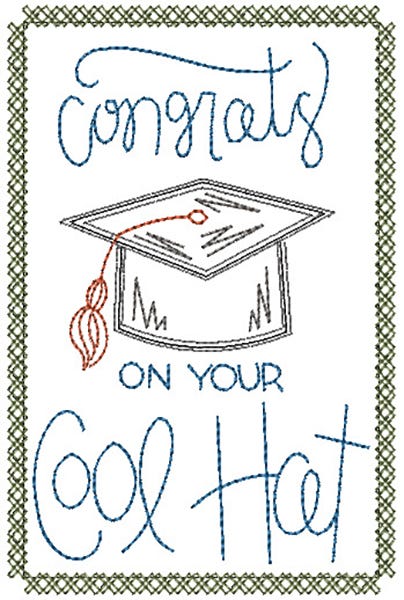 congrats
ON YOUR
Cool Hat